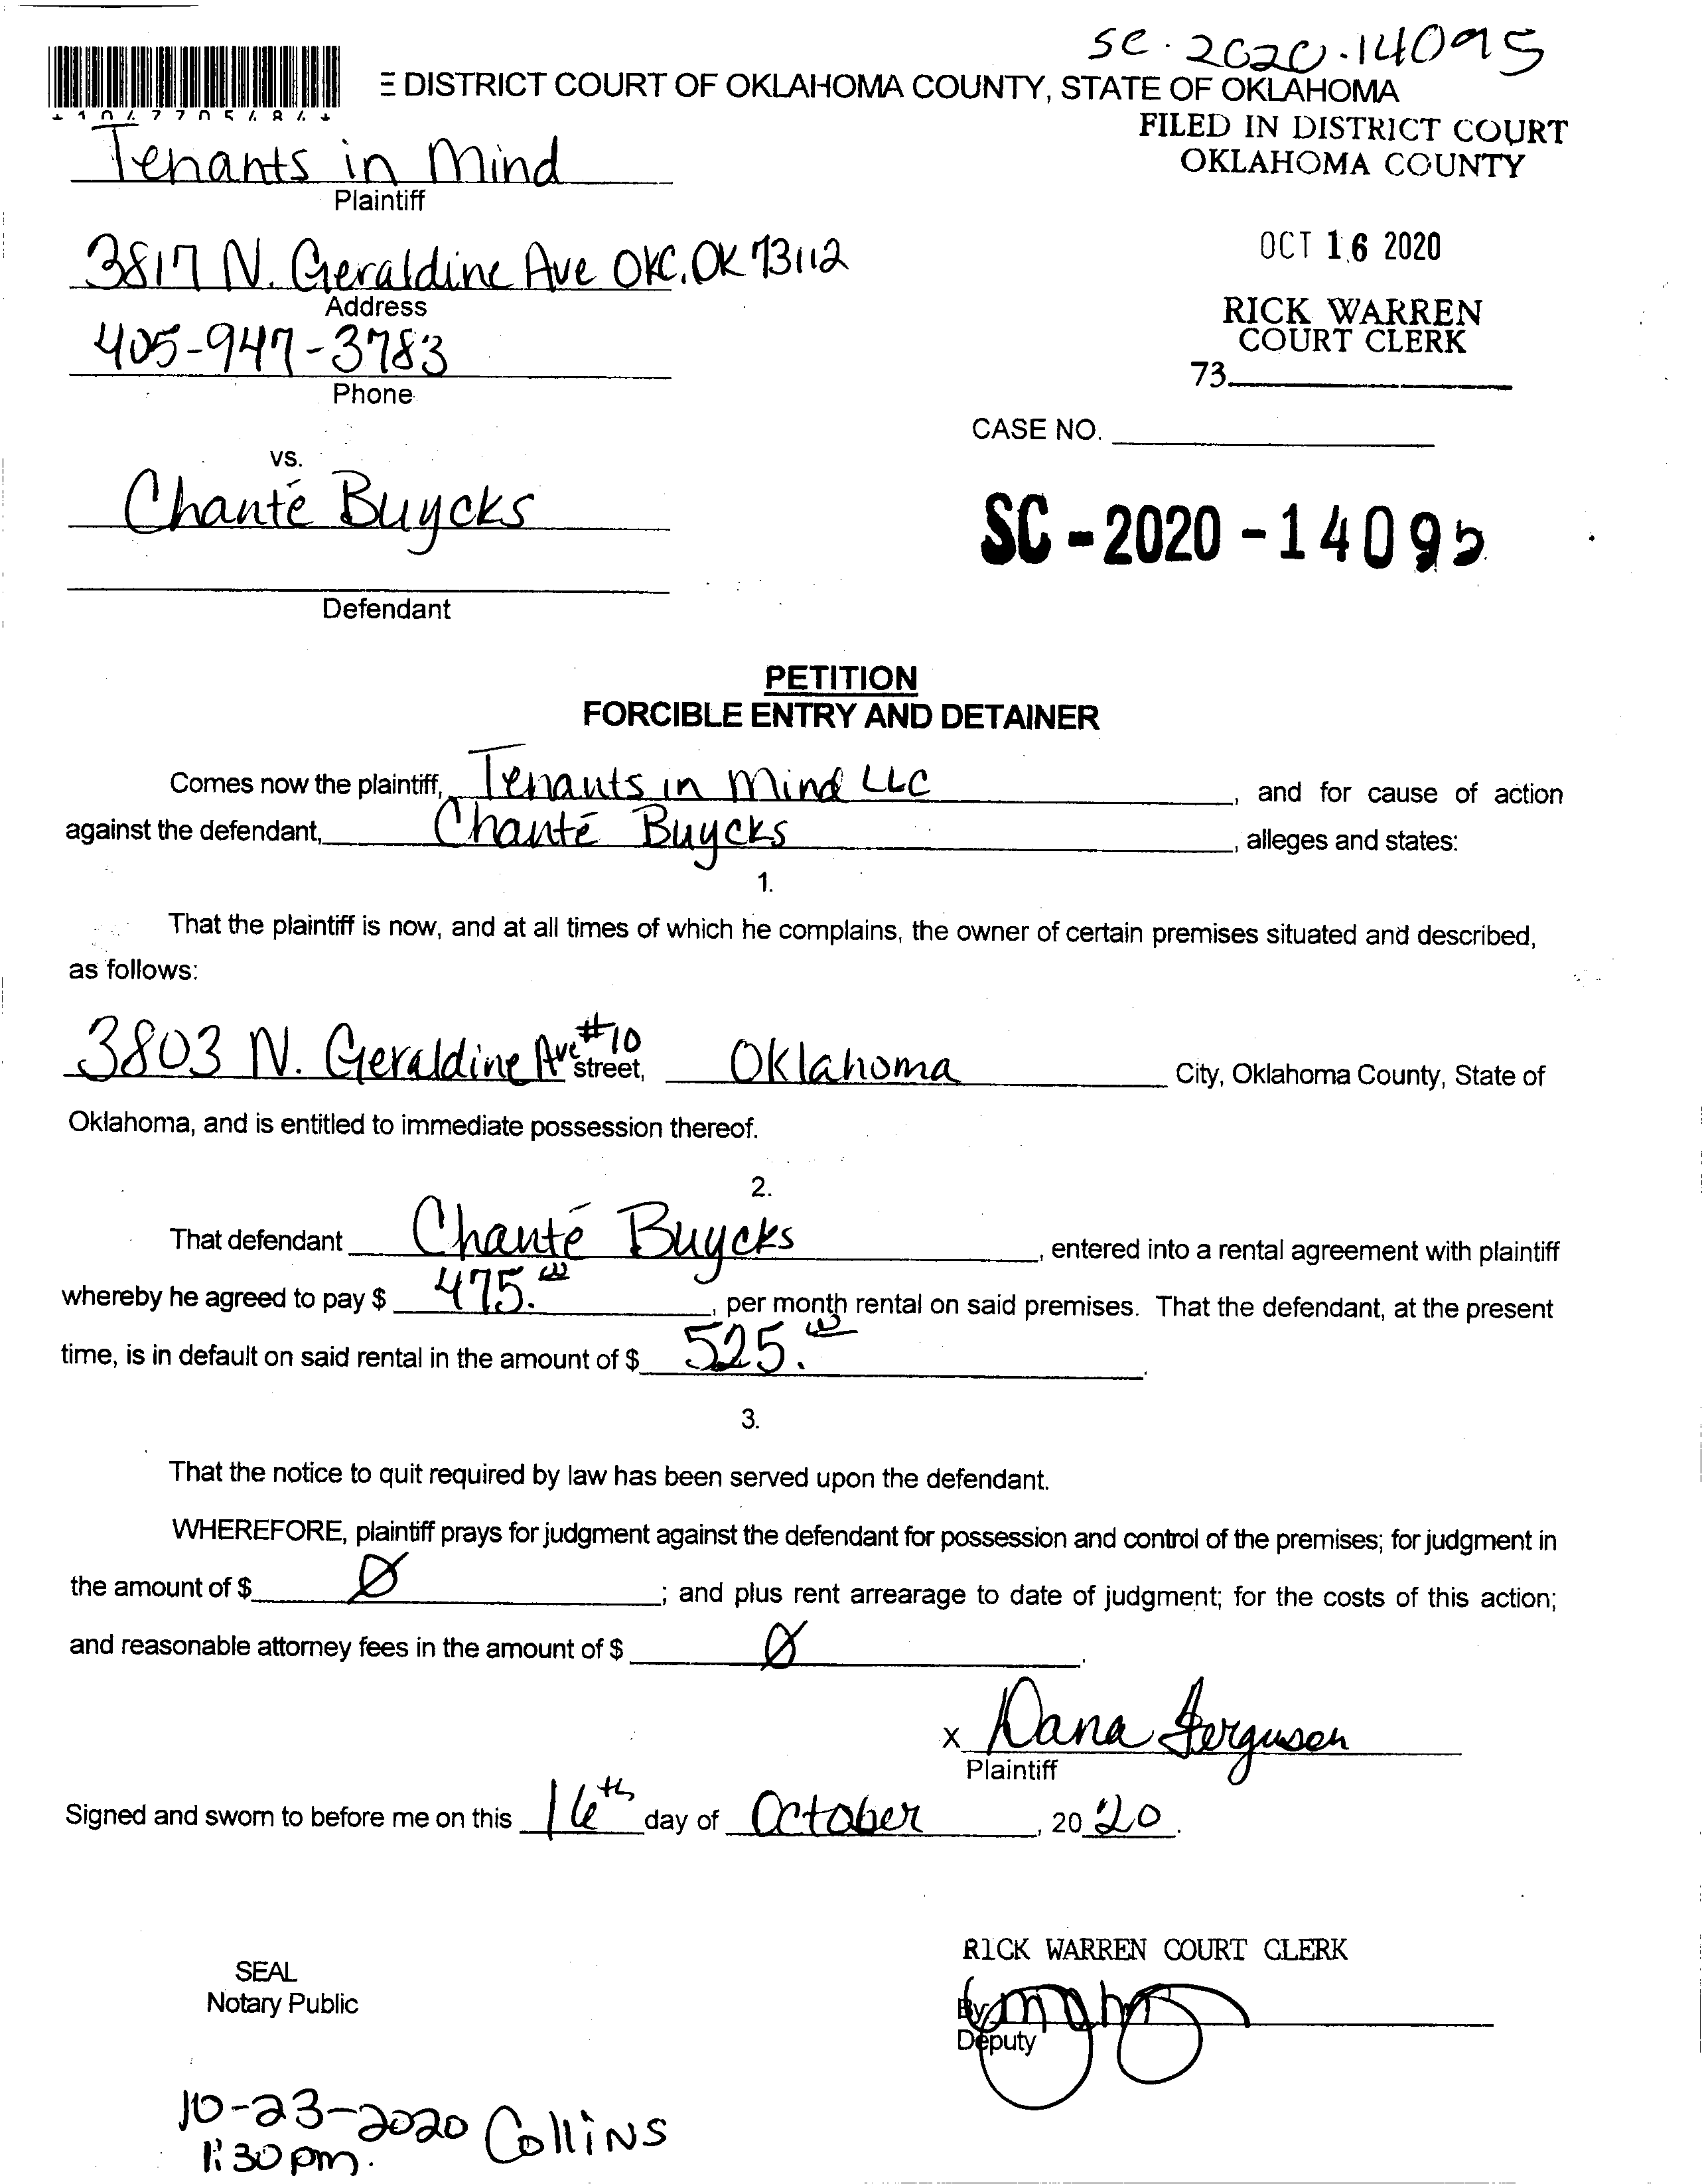 SC-2020-14095
E DISTRICT COURT OF OKLAHOMA COUNTY, STATE OF OKLAHOMA
FILED IN DISTRICT COURT
OKLAHOMA COUNTY
Tenants in Mind
Plaintiff
OCT 16 2020
3817 N. Geraldine Ave OKC, OK 73112
Address
RICK WARREN
COURT CLERK
405-947-3783
Phone
73
CASE NO.
vs.
Chanté Buycks
SC-2020-14095
Defendant
PETITION
FORCIBLE ENTRY AND DETAINER
Comes now the plaintiff, Tenants in Mind LLC, and for cause of action
against the defendant, Chanté Buycks, alleges and states:
1.
That the plaintiff is now, and at all times of which he complains, the owner of certain premises situated and described,
as follows:
3803 N. Geraldine Ave #10 street, Oklahoma City, Oklahoma County, State of
Oklahoma, and is entitled to immediate possession thereof.
2.
That defendant Chanté Buycks, entered into a rental agreement with plaintiff
whereby he agreed to pay $ 475.00, per month rental on said premises. That the defendant, at the present
time, is in default on said rental in the amount of $ 525.00.
3.
That the notice to quit required by law has been served upon the defendant.
WHEREFORE, plaintiff prays for judgment against the defendant for possession and control of the premises; for judgment in
the amount of $ Ø; and plus rent arrearage to date of judgment; for the costs of this action;
and reasonable attorney fees in the amount of $ Ø.
x Dana Ferguson
Plaintiff
Signed and sworn to before me on this 16th day of October, 2020.
RICK WARREN COURT CLERK
SEAL
Notary Public
By
Deputy
10-23-2020 Collins
1:30 pm.